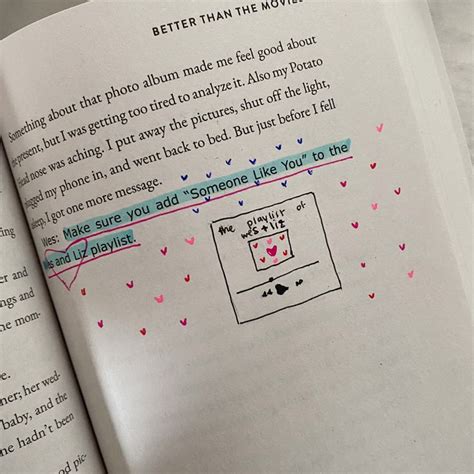 BETTER THAN THE MOVIES
Something about that photo album made me feel good about
present, but I was getting too tired to analyze it. Also my Potato
nose was aching. I put away the pictures, shut off the light,
my phone in, and went back to bed. But just before I fell
I got one more message.
Wes: Make sure you add “Someone Like You” to the
and Liz playlist.
the playlist of
wes + liz
er and
ings and
e mom-
e.
ner; her wed-
baby, and the
he hadn't been
od pic-